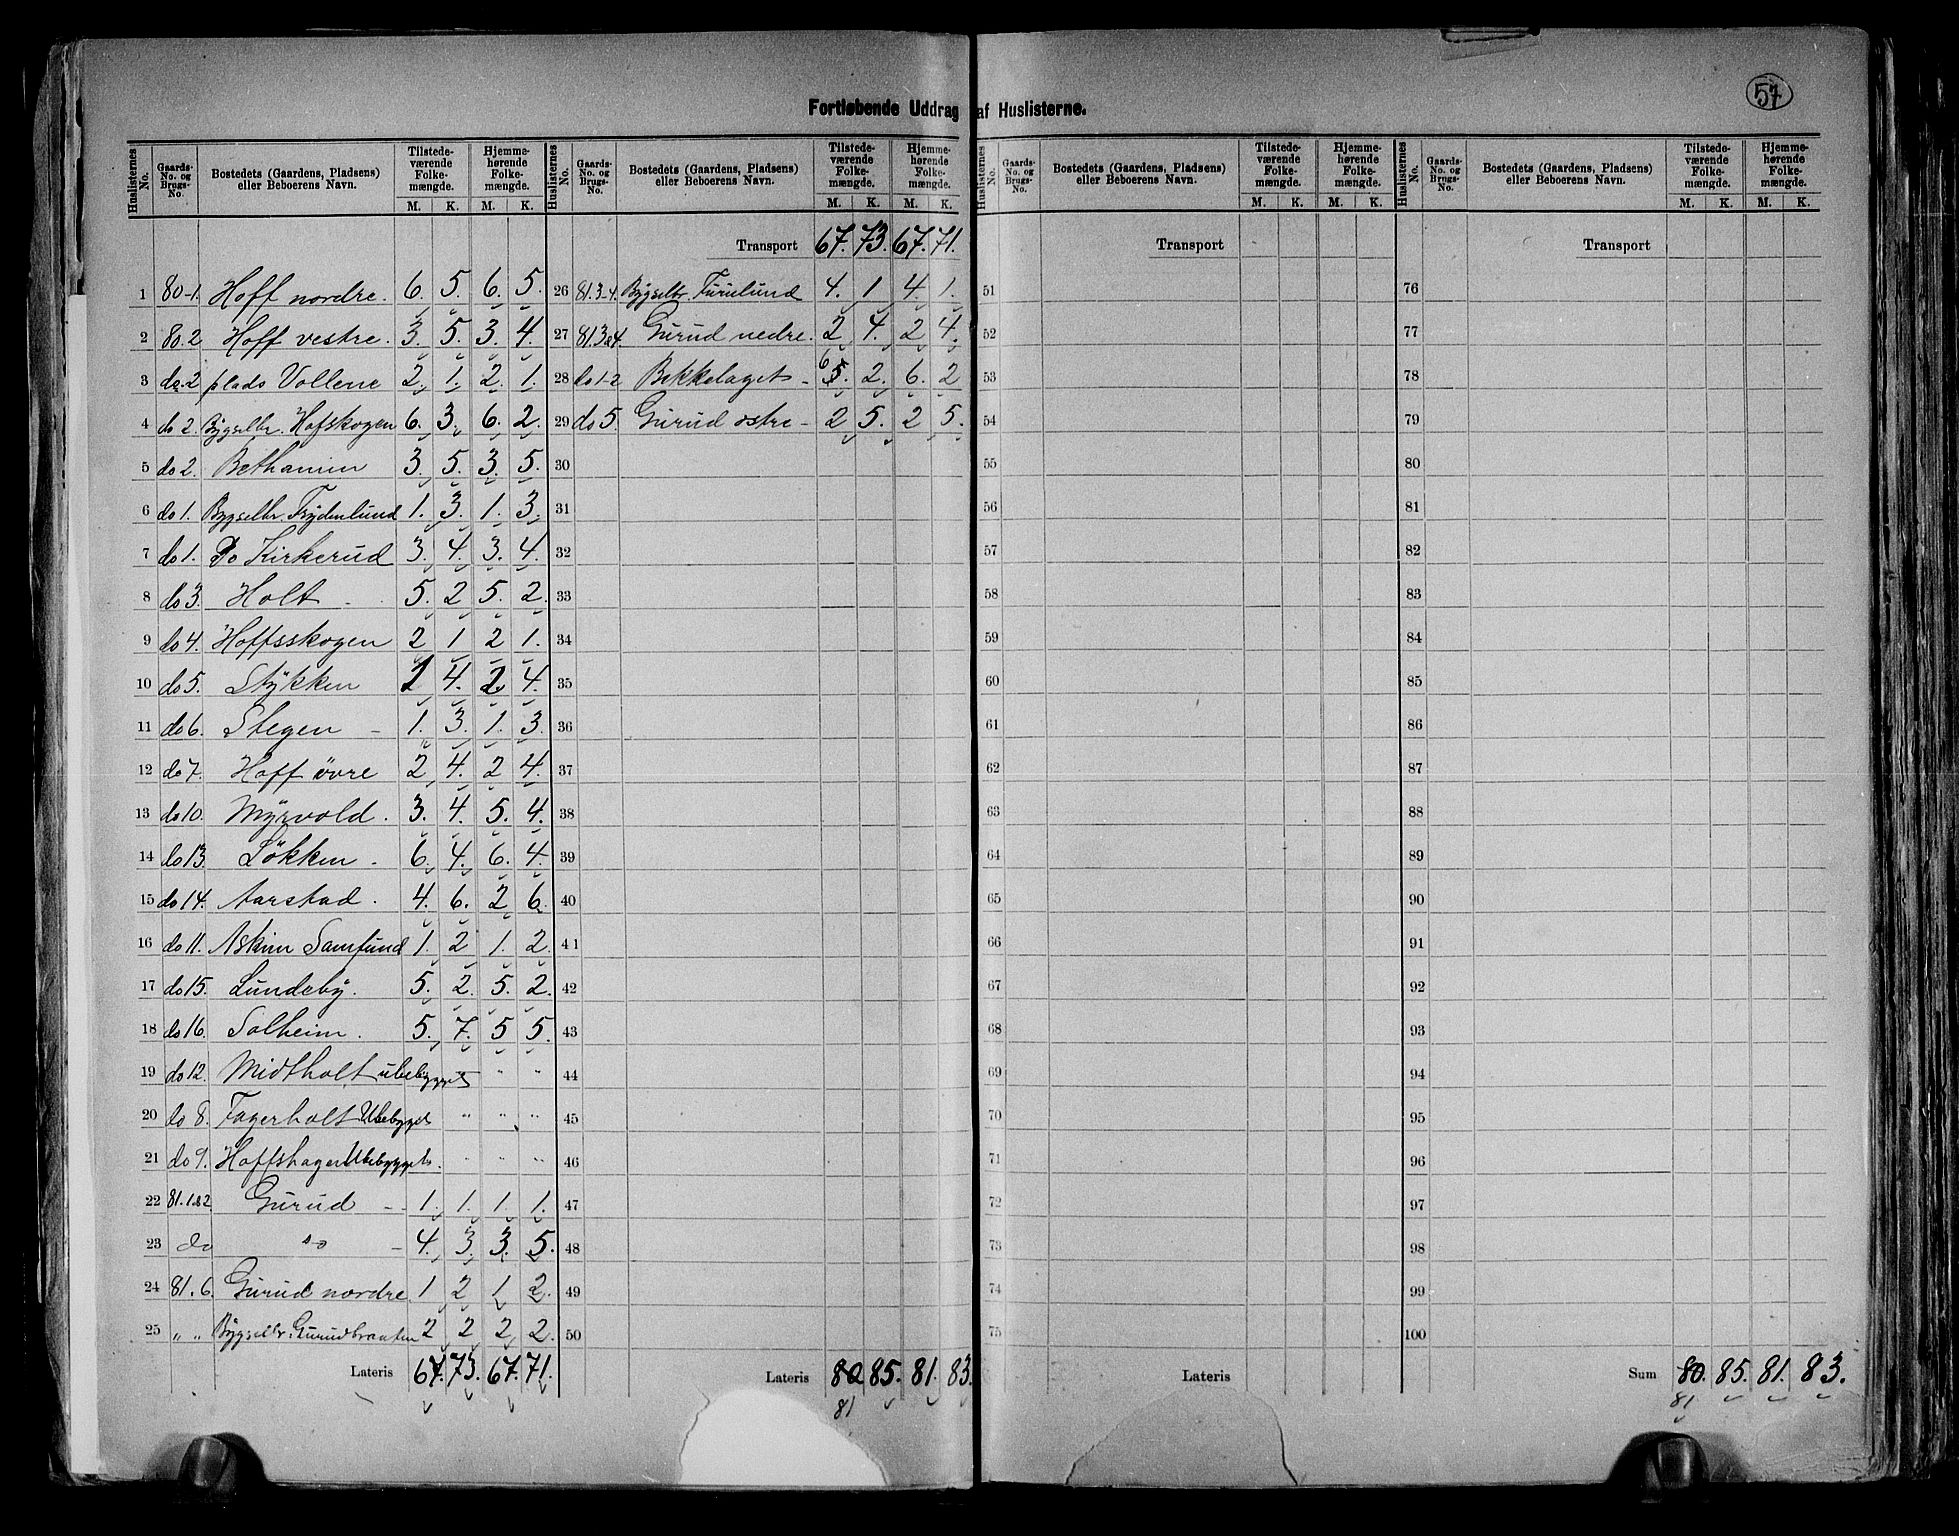 57
Fortløbende Uddrag af Huslisterne.
Huslisternes No. Gaards-No. og Brugs-No. Bostedets (Gaardens, Pladsens) eller Beboerens Navn. Tilstedeværende Folkemængde. M. K. Hjemmehørende Folkemængde. M. K.
1 80-1. Hoff nordre. 6. 5. 6. 5.
2 80.2 Hoff vestre. 3. 5. 3. 4.
3 do.2 plads Vollene 2. 1. 2. 1.
4 do 2. Bygselbr. Hofskogen 6. 3. 6. 2.
5 do 2. Bethanien 3. 5. 3. 5.
6 do 1. Bygselbr. Frydenlund 1. 3. 1. 3.
7 do 1. Do Kirkerud 3. 4. 3. 4.
8 do 3. Holt 5. 2 5. 2.
9 do 4. Hoffsskogen 2 1 2 1.
10 do 5. Stykken 2 4. 2. 4.
11 do 6. Stegen - 1. 3. 1. 3.
12 do 7. Hoff övre 2 4. 2 4.
13 do 10. Myrvold. 3. 4. 5. 4.
14 do 13. Lökken - 6. 4. 6. 4.
15 do 14. Aarstad. 4. 6. 2 6.
16 do 11. Askim Samfund 1. 2 1. 2.
17 do 15. Lundeby. 5. 2. 5. 2.
18 do 16. Solheim. 5. 7. 5 5.
19 do 12. Midtholt ubebygget " " "
20 do 8. Fagerholt Ubebygget " " "
21 do 9. Hoffshagen Ubebygget. " " "
22 81.1&2 Gurud - - 1. 1. 1. 1.
23 do do - 4. 3. 3. 5.
24 81.6. Gurud nordre 1 2 1 2.
25 " " Bygselbr. Gurudbraaten 2 2 2 2.
Lateris 67. 73. 67. 71.
Huslisternes No. Gaards-No. og Brugs-No. Bostedets (Gaardens, Pladsens) eller Beboerens Navn. Tilstedeværende Folkemængde. M. K. Hjemmehørende Folkemængde. M. K.
Transport 67. 73. 67. 71.
26 81.3-4. Bygselbr. Furulund 4. 1 4. 1.
27 81.3&4. Gurud nedre. 2 4. 2 4.
28 do 1-2 Bekkelaget - 6 5. 2. 6. 2
29 do 5. Gurud østre - 2 5. 2 5.
30
31
32
33
34
35
36
37
38
39
40
41
42
43
44
45
46
47
48
49
50
Lateris 80 85. 81. 83.
81
Huslisternes No. Gaards-No. og Brugs-No. Bostedets (Gaardens, Pladsens) eller Beboerens Navn. Tilstedeværende Folkemængde. M. K. Hjemmehørende Folkemængde. M. K.
Transport
51
52
53
54
55
56
57
58
59
60
61
62
63
64
65
66
67
68
69
70
71
72
73
74
75
Lateris
Huslisternes No. Gaards-No. og Brugs-No. Bostedets (Gaardens, Pladsens) eller Beboerens Navn. Tilstedeværende Folkemængde. M. K. Hjemmehørende Folkemængde. M. K.
Transport
76
77
78
79
80
81
82
83
84
85
86
87
88
89
90
91
92
93
94
95
96
97
98
99
100
Sum 80. 85. 81. 83.
81